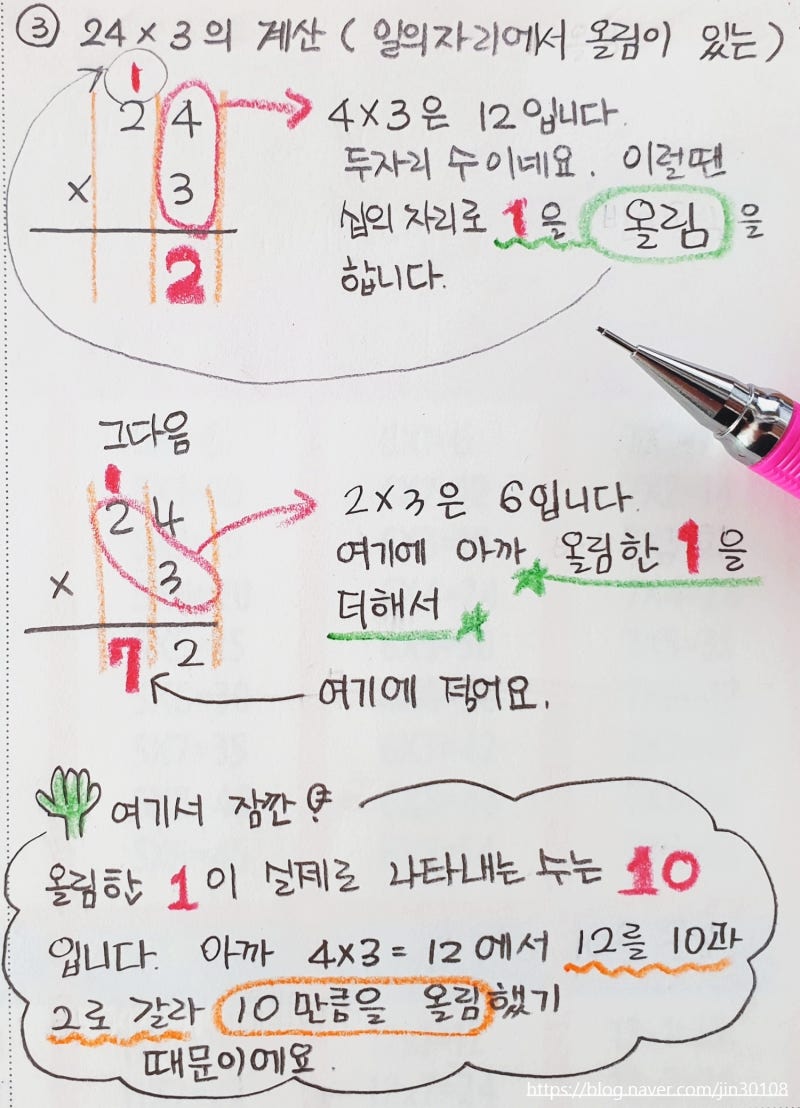 ③ 24 × 3의 계산 ( 일의자리에서 올림이 있는 )
1
2 4
× 3
2
4×3은 12입니다.
두자리 수이네요. 이럴땐
십의 자리로 1을 올림을
합니다.
그다음
1
2 4
× 3
7 2
2×3은 6입니다.
여기에 아까 올림한 1을
더해서
여기에 적어요.
여기서 잠깐!
올림한 1이 실제로 나타내는 수는 10
입니다. 아까 4×3 = 12에서 12를 10과
2로 갈라 10만큼을 올림했기
때문이에요.
https://blog.naver.com/jin30108